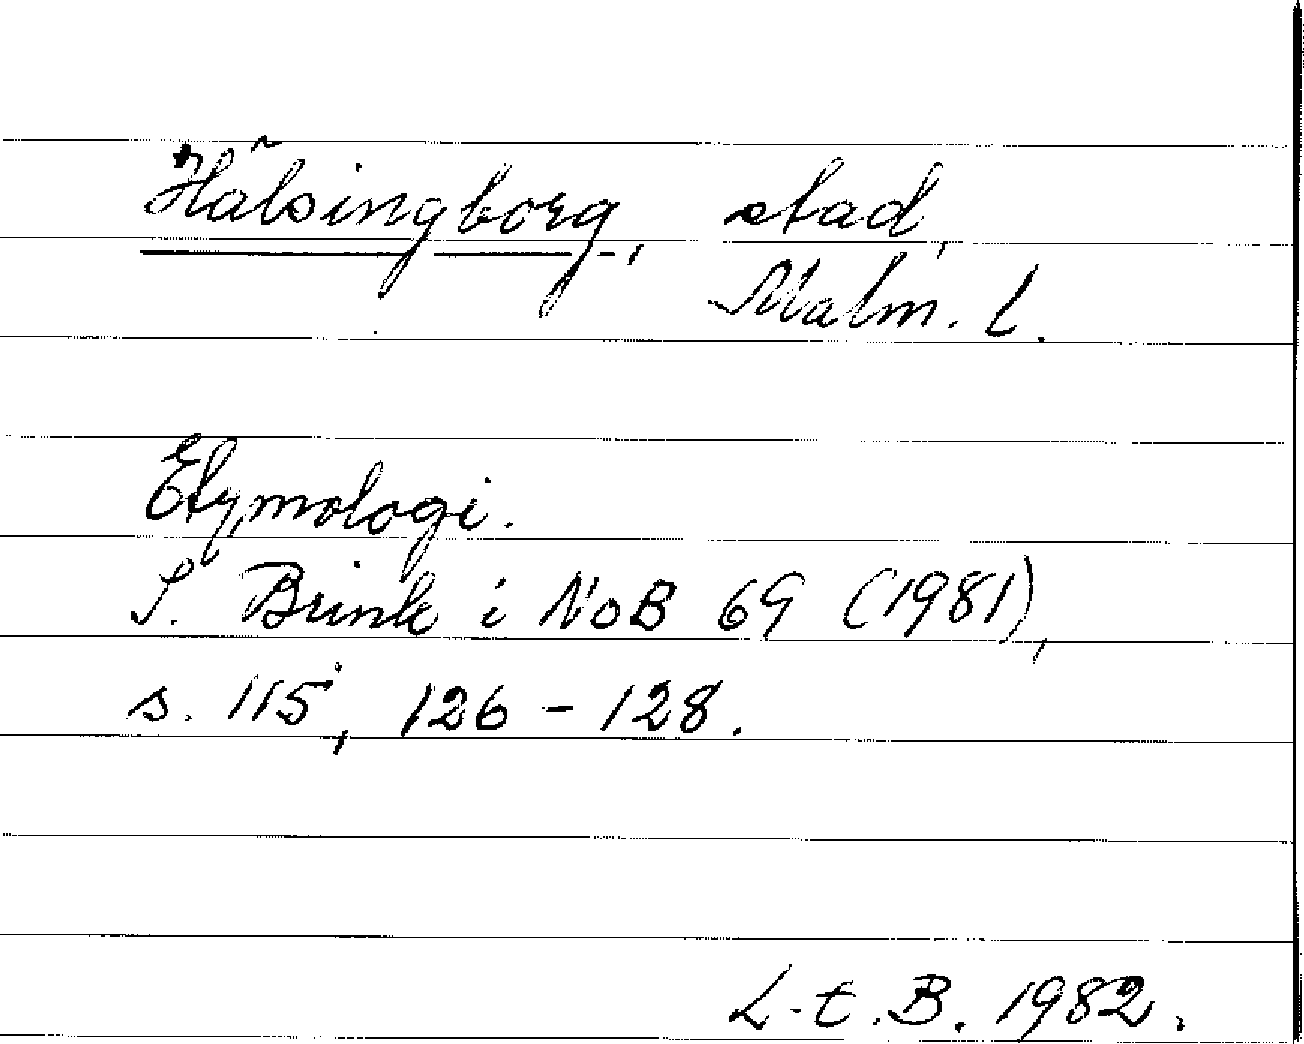 Hälsingborg, stad,
Malm. l.
Etymologi.
S. Brink i NoB 69 (1981),
s. 115, 126 - 128.
L-t.B. 1982.